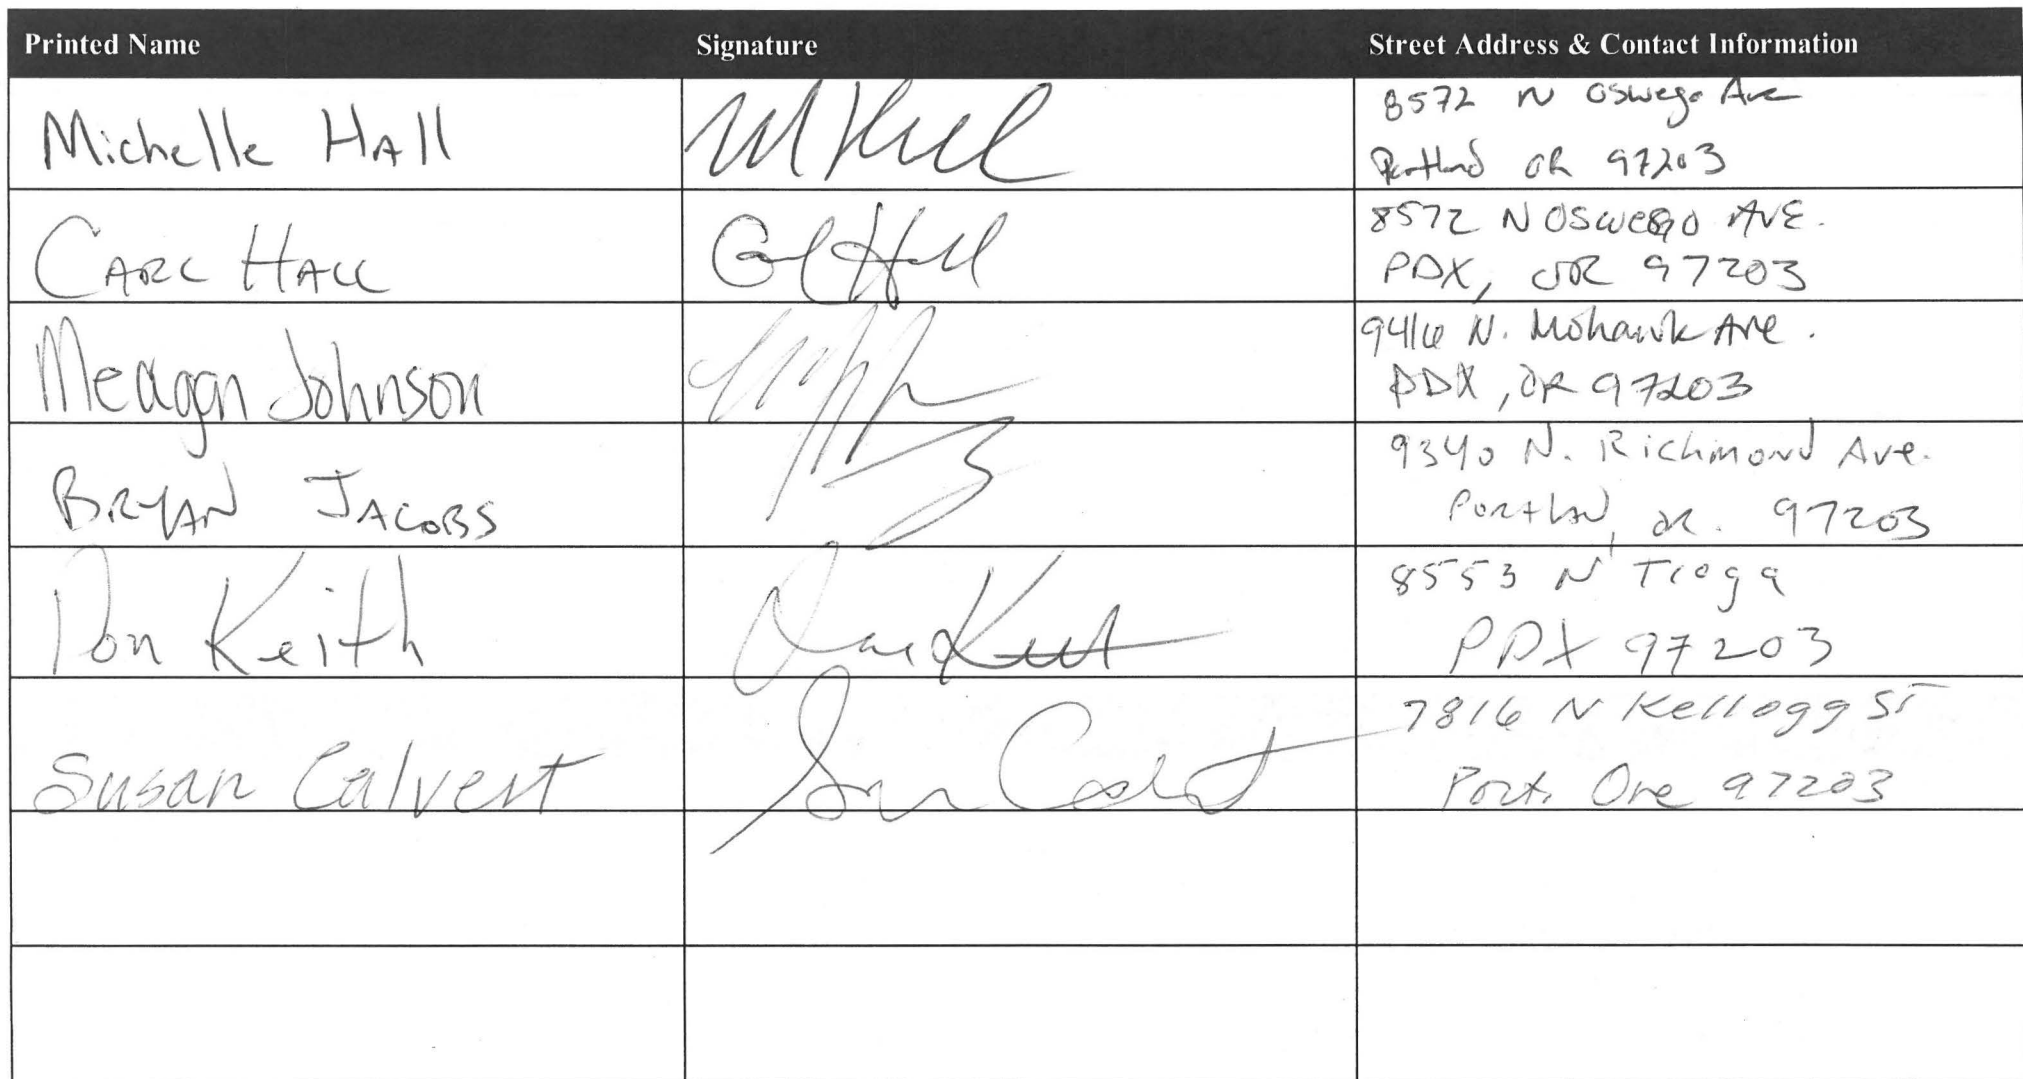 Printed Name Signature Street Address & Contact Information
Michelle Hall
8572 N Oswego Ave
Portland OR 97203
Carl Hall Carl Hall
8572 N Oswego Ave.
PDX, OR 97203
Meagan Johnson
9416 N. Mohawk Ave.
PDX, OR 97203
Bryan Jacobs
9340 N. Richmond Ave.
Portland, OR. 97203
Don Keith
8553 N Tioga
PDX 97203
Susan Calvert
7816 N Kellogg St
Port. Ore 97203